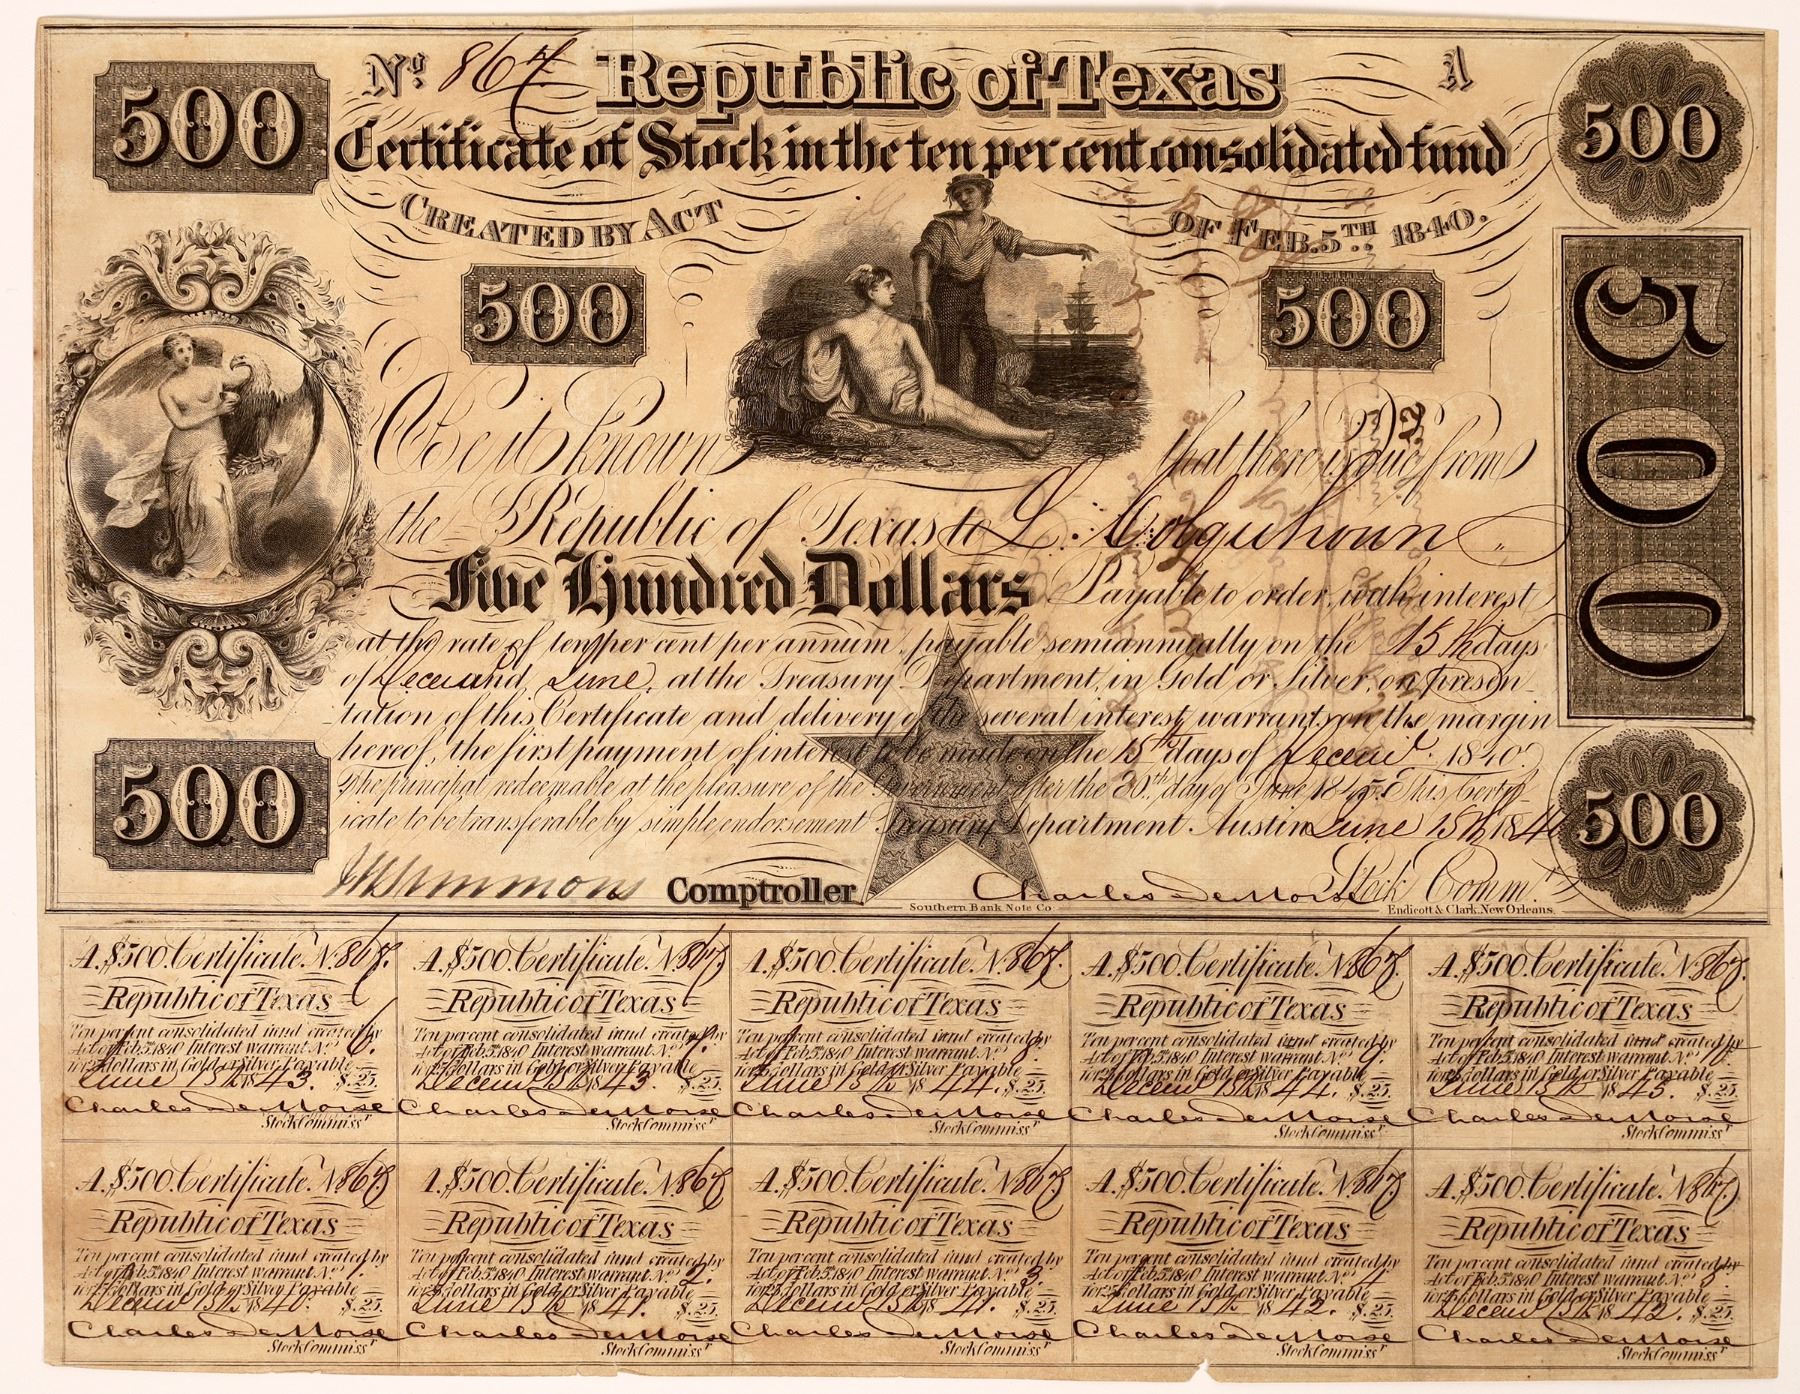 500
No. 867
Republic of Texas
A
500
Certificate of Stock in the ten per cent consolidated fund
CREATED BY ACT OF FEB. 5TH 1840.
500
500
500
Be it known that there is due from
the Republic of Texas to L. Colquhoun
Five Hundred Dollars Payable to order, with interest
at the rate of ten per cent per annum, payable semiannually on the 15th days
of Decem and June, at the Treasury Department, in Gold or Silver, on presen-
tation of this Certificate and delivery of the several interest warrants on the margin
hereof, the first payment of interest to be made on the 15th days of Decem 1840.
The principal redeemable at the pleasure of the Government after the 30th day of June 1845. This Certif-
icate to be transferable by simple endorsement Treasury Department Austin June 15th 1840
500
500
J W Simmons Comptroller Charles DeMorse Stock Commr.
Southern Bank Note Co. Endicott & Clark, New Orleans.
A. $500. Certificate. No. 867.
Republic of Texas
Ten per cent consolidated fund created by
Act of Feb. 5. 1840 Interest warrant No. 6.
for 25 dollars in Gold or Silver Payable
June 15th 1843. $.25.
Charles DeMorse
Stock Commissr.
A. $500. Certificate. No. 867
Republic of Texas
Ten per cent consolidated fund created by
Act of Feb. 5. 1840 Interest warrant No. 7.
for 25 dollars in Gold or Silver Payable
Decem 15th 1843. $.25.
Charles DeMorse
Stock Commissr.
A. $500. Certificate. No. 867.
Republic of Texas
Ten per cent consolidated fund created by
Act of Feb. 5. 1840 Interest warrant No. 8.
for 25 dollars in Gold or Silver Payable
June 15th 1844. $.25.
Charles DeMorse
Stock Commissr.
A. $500. Certificate. No. 867
Republic of Texas
Ten per cent consolidated fund created by
Act of Feb. 5. 1840 Interest warrant No. 9.
for 25 dollars in Gold or Silver Payable
Decem 15th 1844. $.25.
Charles DeMorse
Stock Commissr.
A. $500. Certificate. No. 867.
Republic of Texas
Ten per cent consolidated fund created by
Act of Feb. 5. 1840 Interest warrant No. 10.
for 25 dollars in Gold or Silver Payable
June 15th 1845. $.25.
Charles DeMorse
Stock Commissr.
A. $500. Certificate. No. 867
Republic of Texas
Ten per cent consolidated fund created by
Act of Feb. 5. 1840 Interest warrant No. 1.
for 25 dollars in Gold or Silver Payable
Decem 15th 1840. $.25.
Charles DeMorse
Stock Commissr.
A. $500. Certificate. No. 867
Republic of Texas
Ten per cent consolidated fund created by
Act of Feb. 5. 1840 Interest warrant No. 2.
for 25 dollars in Gold or Silver Payable
June 15th 1841. $.25.
Charles DeMorse
Stock Commissr.
A. $500. Certificate. No. 867
Republic of Texas
Ten per cent consolidated fund created by
Act of Feb. 5. 1840 Interest warrant No. 3.
for 25 dollars in Gold or Silver Payable
Decem 15th 1841. $.25.
Charles DeMorse
Stock Commissr.
A. $500. Certificate. No. 867
Republic of Texas
Ten per cent consolidated fund created by
Act of Feb. 5. 1840 Interest warrant No. 4
for 25 dollars in Gold or Silver Payable
June 15th 1842. $.25.
Charles DeMorse
Stock Commissr.
A. $500. Certificate. No. 867
Republic of Texas
Ten per cent consolidated fund created by
Act of Feb. 5. 1840 Interest warrant No. 5.
for 25 dollars in Gold or Silver Payable
Decem 15th 1842. $.25.
Charles DeMorse
Stock Commissr.